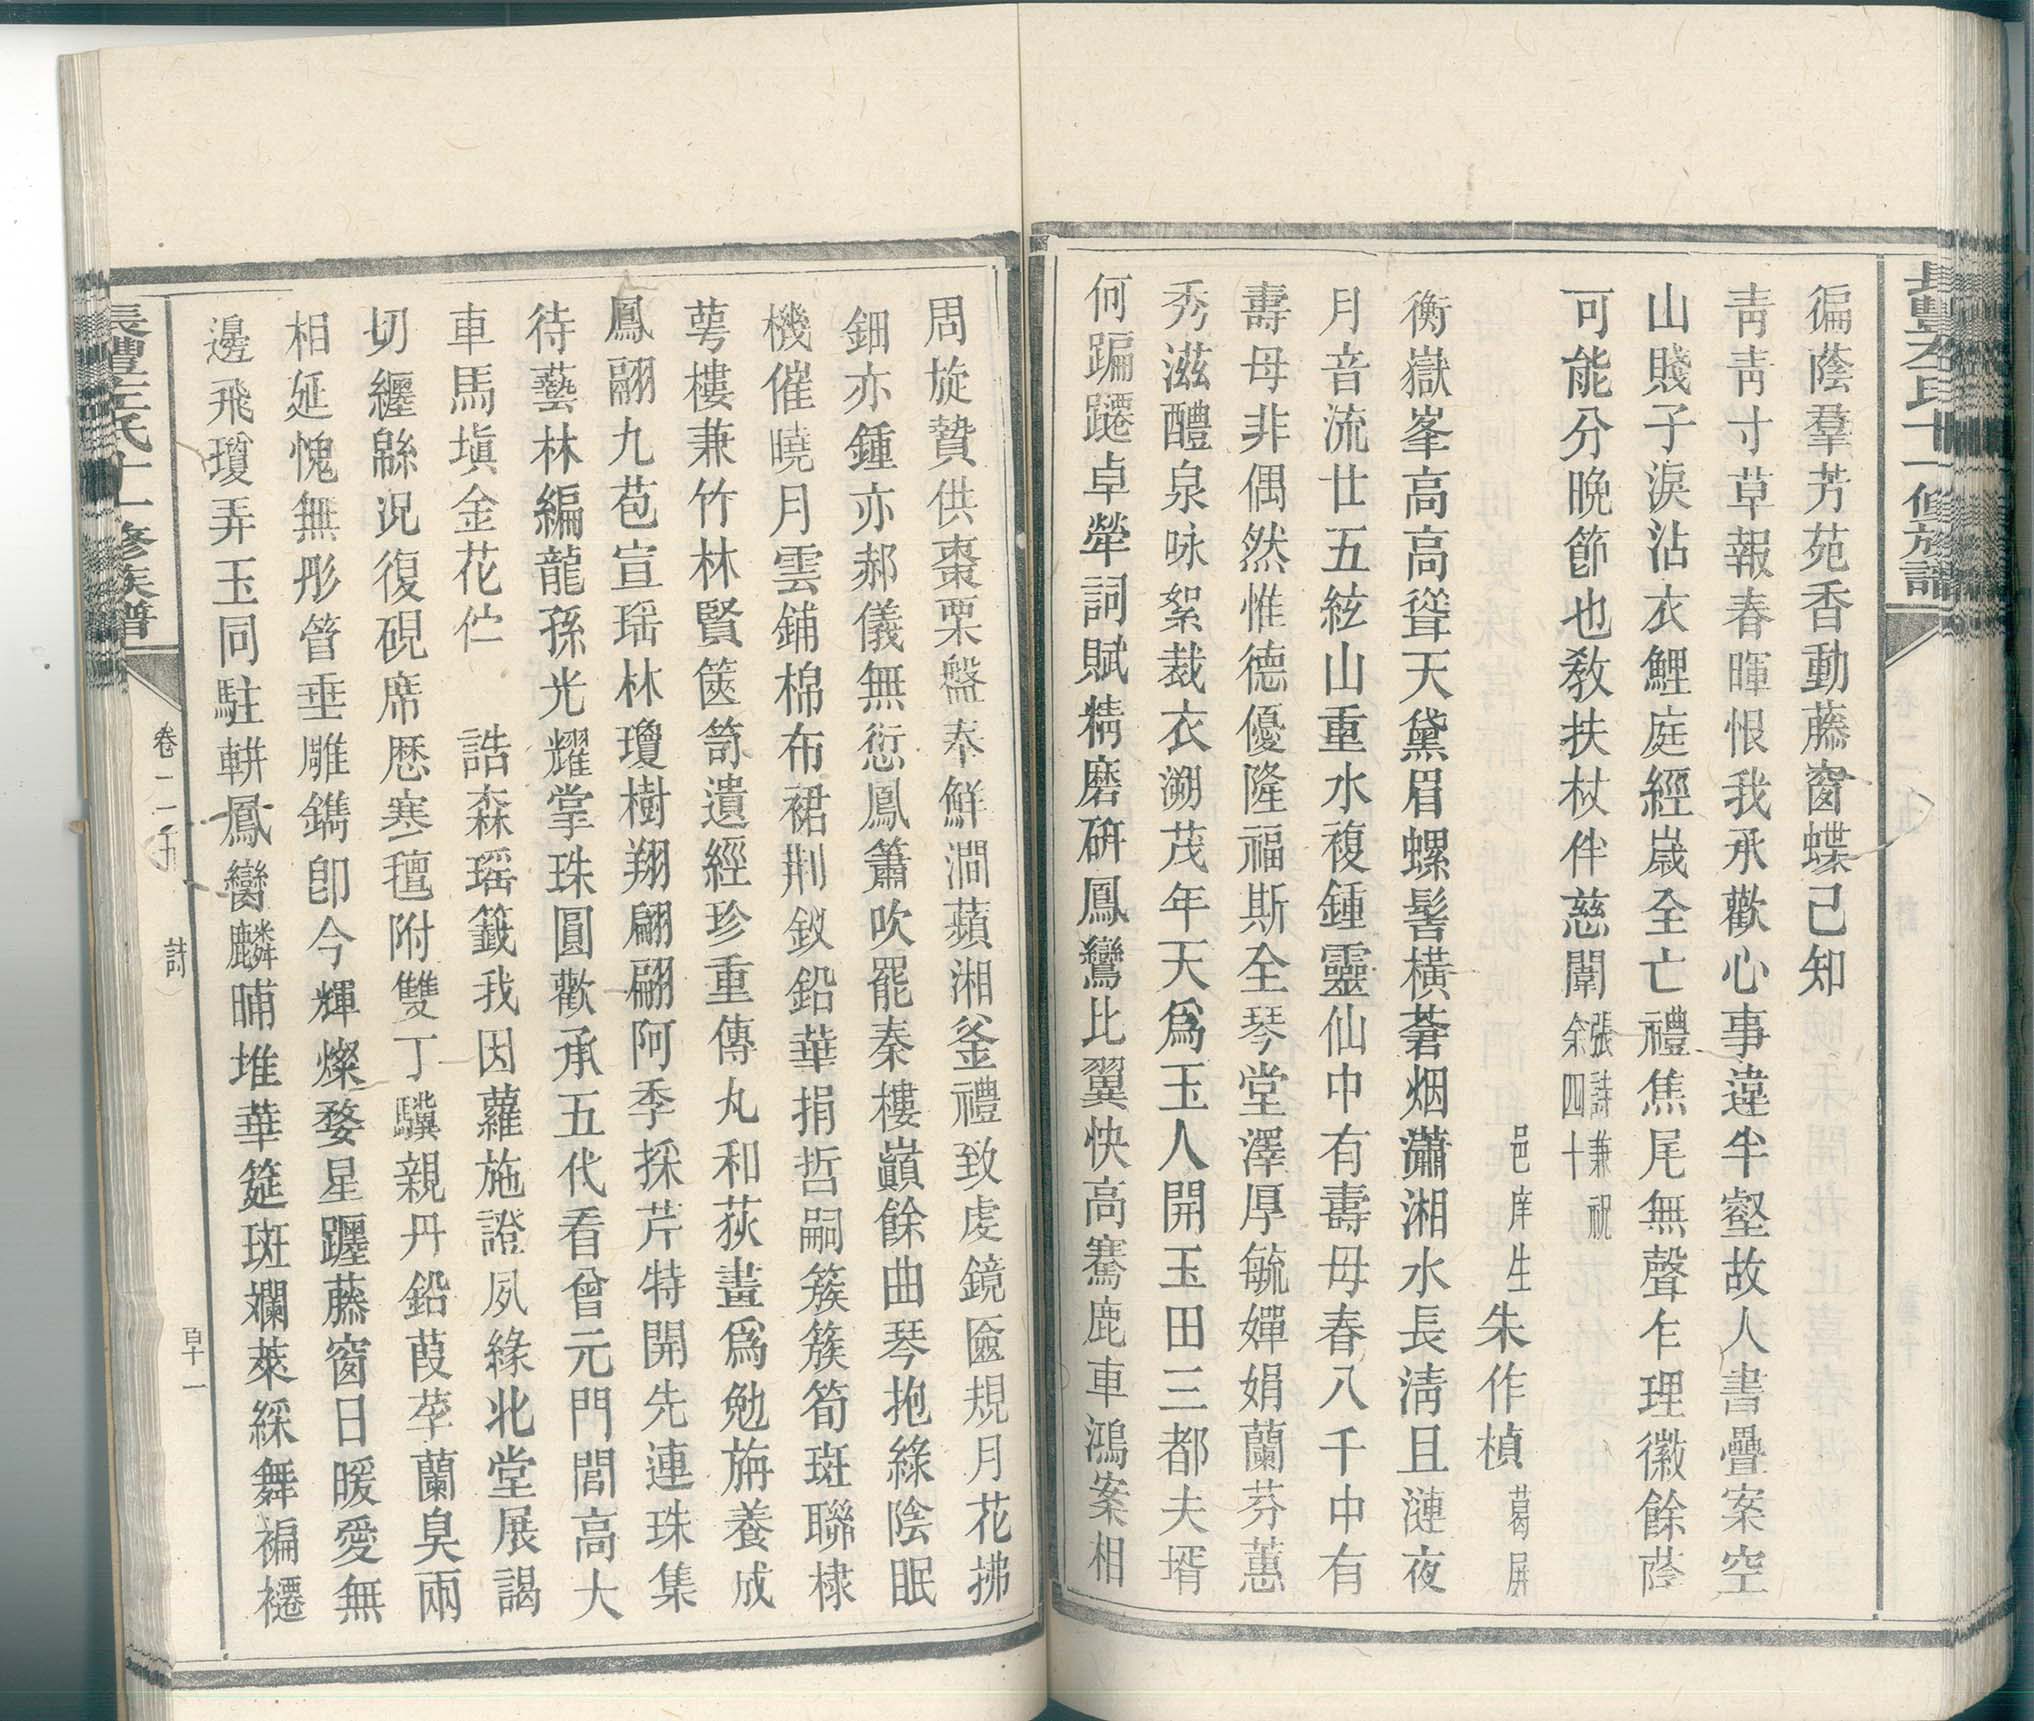 徧蔭羣芳苑香動藤窗蝶己知
靑靑寸草報春暉恨我承歡心事違半壑故人書疊案空
山賤子淚沾衣鯉庭經歲全亡禮焦尾無聲乍理徽餘蔭
可能分晚節也敎扶杖伴慈闈張詩兼祝余四十
邑庠生朱作楨葛屏
衡嶽峯高高聳天黛眉螺髻橫蒼烟瀟湘水長淸且漣夜
月音流廿五絃山重水複鍾靈仙中有壽母春八千中有
壽母非偶然惟德優隆福斯全琴堂澤厚毓嬋娟蘭芬蕙
秀滋醴泉咏絮裁衣溯茂年天爲玉人開玉田三都夫壻
何蹁躚卓犖詞賦精磨硏鳳鸞比翼快高騫鹿車鴻案相
周旋贄供棗栗盤奉鮮澗蘋湘釜禮致虔鏡匳規月花拂
鈿亦鍾亦郝儀無愆鳳簫吹罷秦樓巔餘曲琴抱綠陰眠
機催曉月雲鋪棉布裙荆釵鉛華捐哲嗣簇簇筍斑聯棣
萼樓兼竹林賢篋笥遺經珍重傳丸和荻畫爲勉旃養成
鳳翮九苞宣瑶林瓊樹翔翩翩阿季採芹特開先連珠集
待藝林編龍孫光耀掌珠圓歡承五代看曾元門閭高大
車馬塡金花伫　誥森瑶籖我因蘿施證夙緣北堂展謁
切纏緜況復硯席歷寒氊附雙丁驥親丹鉛葭莩蘭臭兩
相延愧無彤管垂雕鐫卽今輝燦婺星躔藤窗日暖愛無
邊飛瓊弄玉同駐軿鳳鸞麟晡堆華筵斑斕萊綵舞褊褼
長豐左氏十一修族譜
卷二
詩
百十一